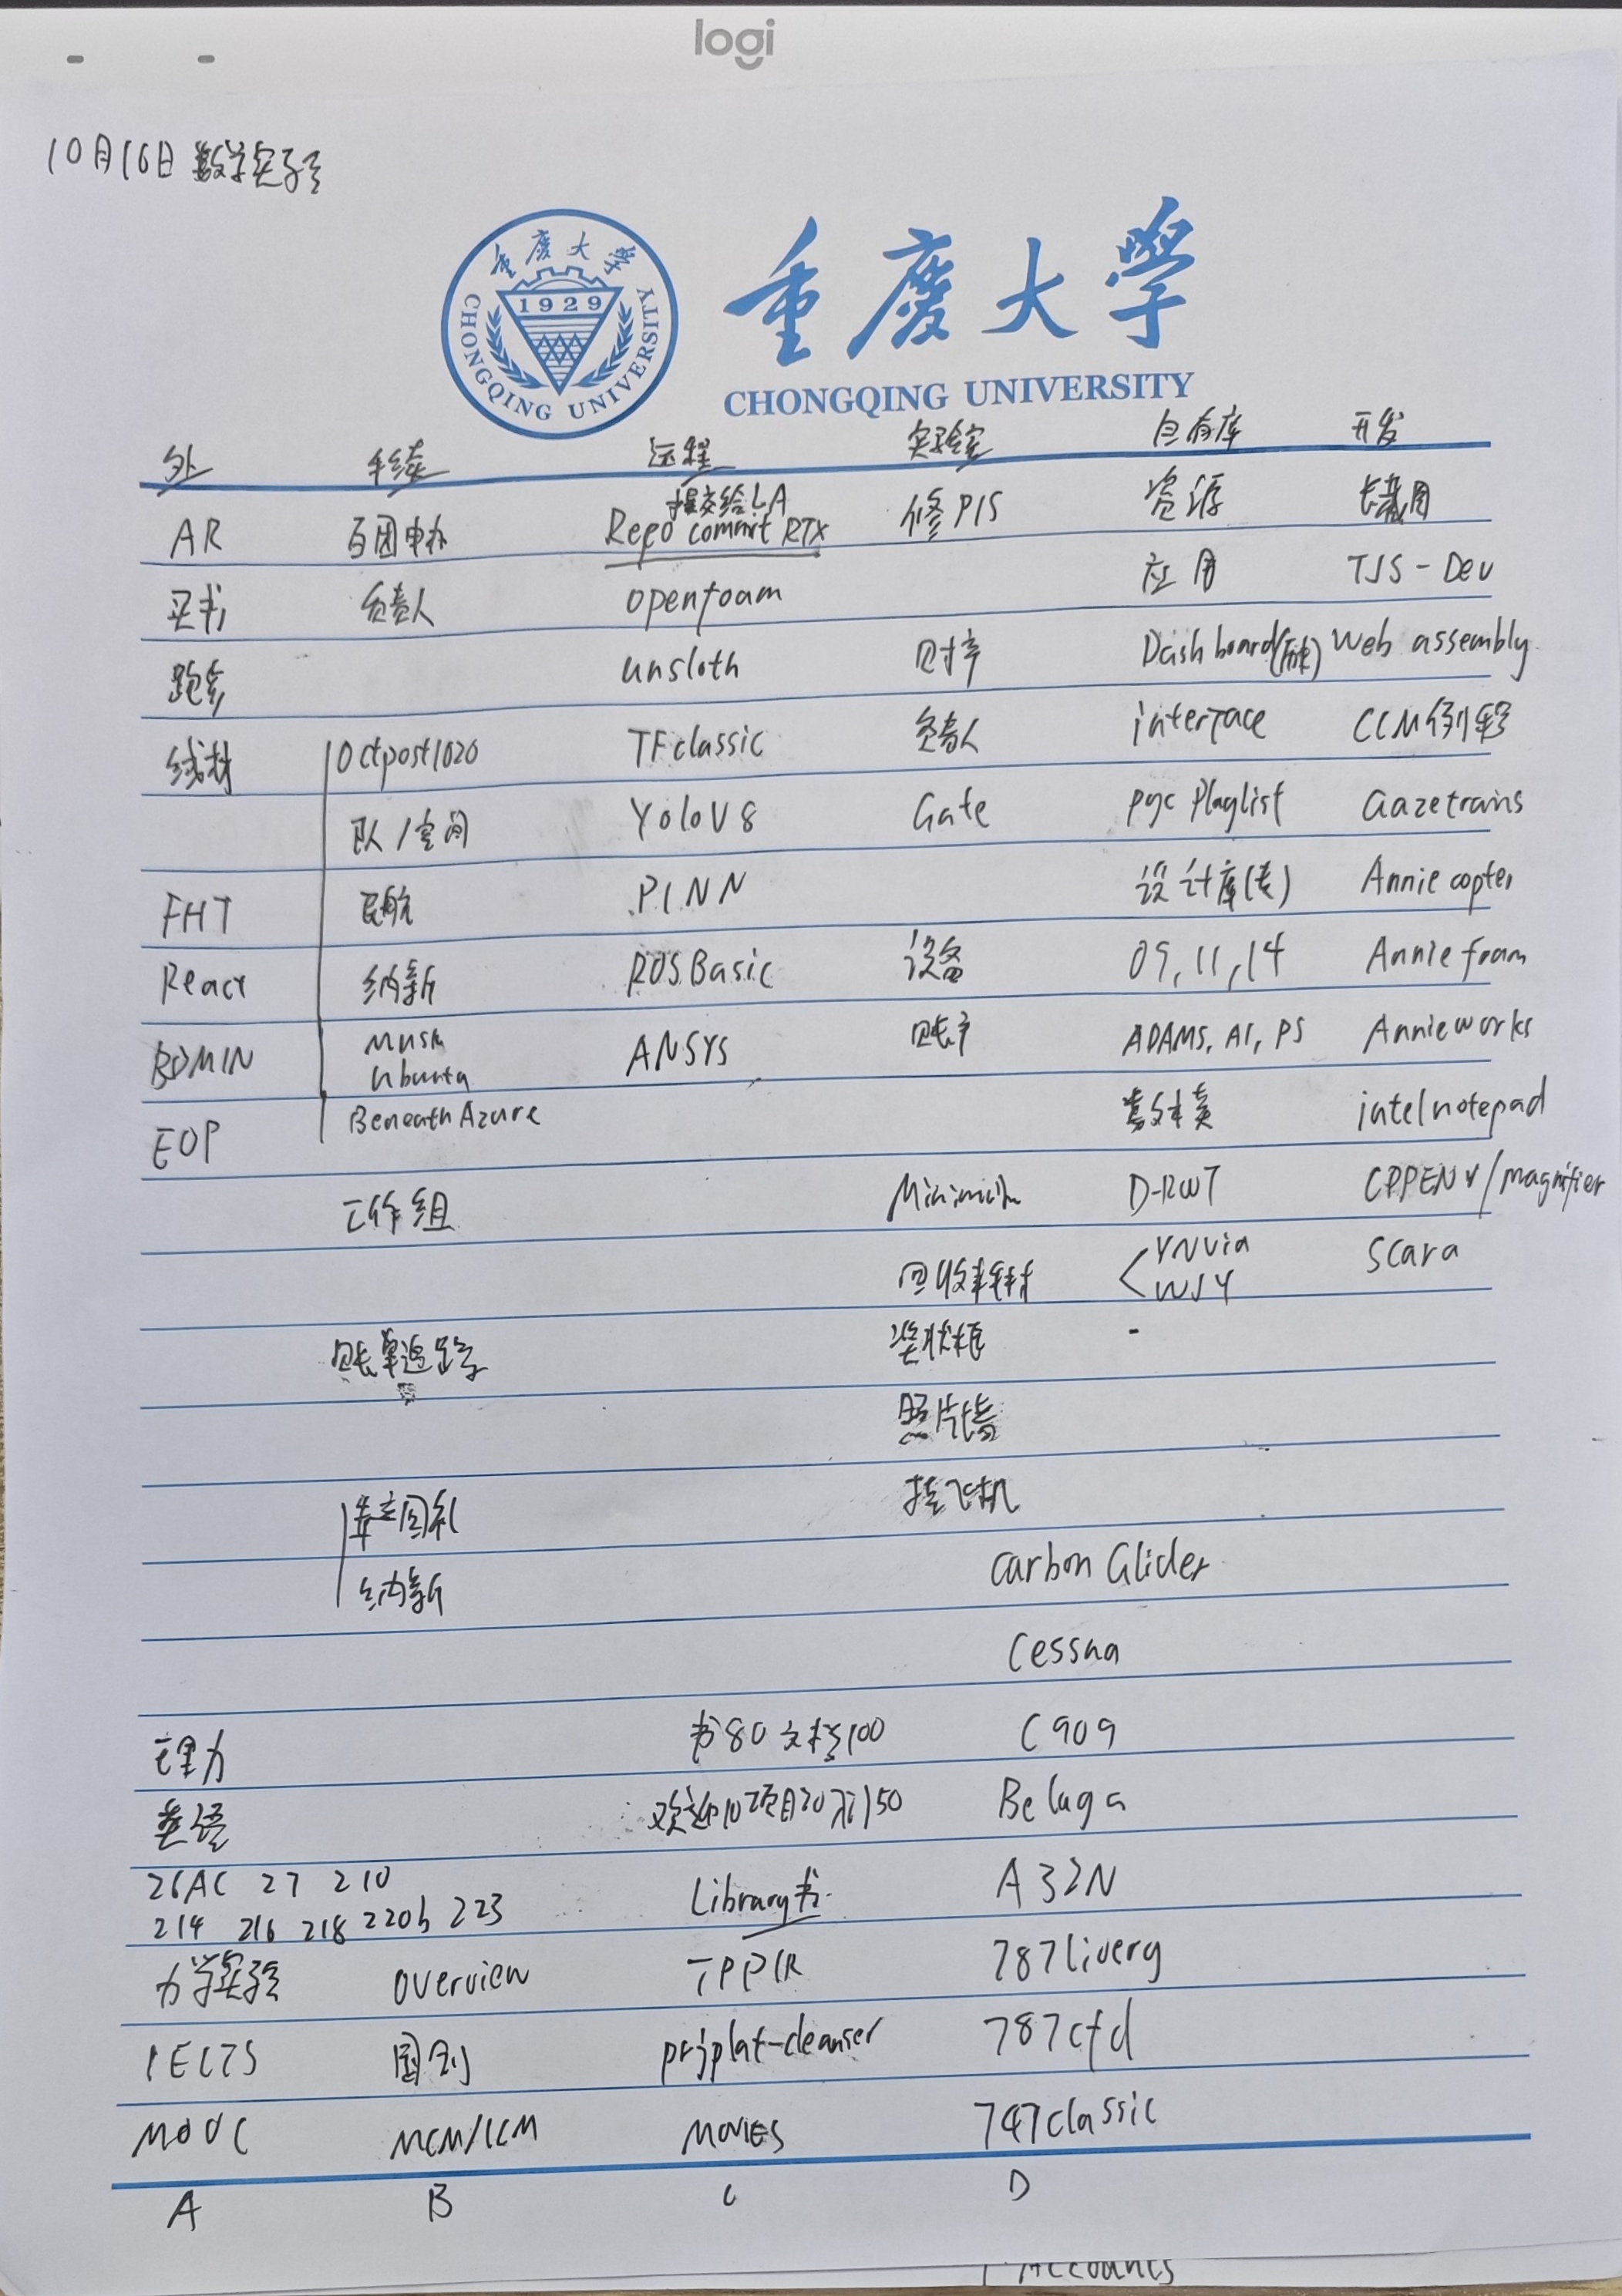 logi
10月16日 数学实验
重庆大学
1929
CHONGQING UNIVERSITY
重慶大學
CHONGQING UNIVERSITY
外 手续 远程 实验室 自有库 开发
AR 百团申办 提交给LA 修PIS 资源 长截图
Repo commit RTX
买书 负责人 openfoam 应用 TJS-Dev
跑步 unsloth 财产 Dashboard web assembly
线材 Octpost1020 TFclassic 负责人 interface CCM例程
队/空间 YoloV8 Gate pgc Playlist Gazetrans
FHT 民航 PINN 设计库(表) Annie copter
React 纳新 ROS Basic 设备 09,11,14 Annie foam
BDMIN Musk ANSYS 账户 ADAMS, AI, PS Annieworks
Ubuntu
EOP Beneath Azure intelnotepad
工作组 D-RWT /magnifier
回收耗材 YNVia Scara
WJY
账单追踪 奖状框 -
照片墙
回礼 挂飞机
纳新 Carbon Glider
Cessna
理力 书80 文档100 C909
英语 欢迎10项目20 Beluga
26AC 27 210 Library书 A32N
214 216 218 220b 223
力学实验 overview TPPIR 787livery
IELTS 国创 prjplat-cleanser 787cfd
MOOC MCM/ICM MOVIES 747classic
A B C D
Accounts